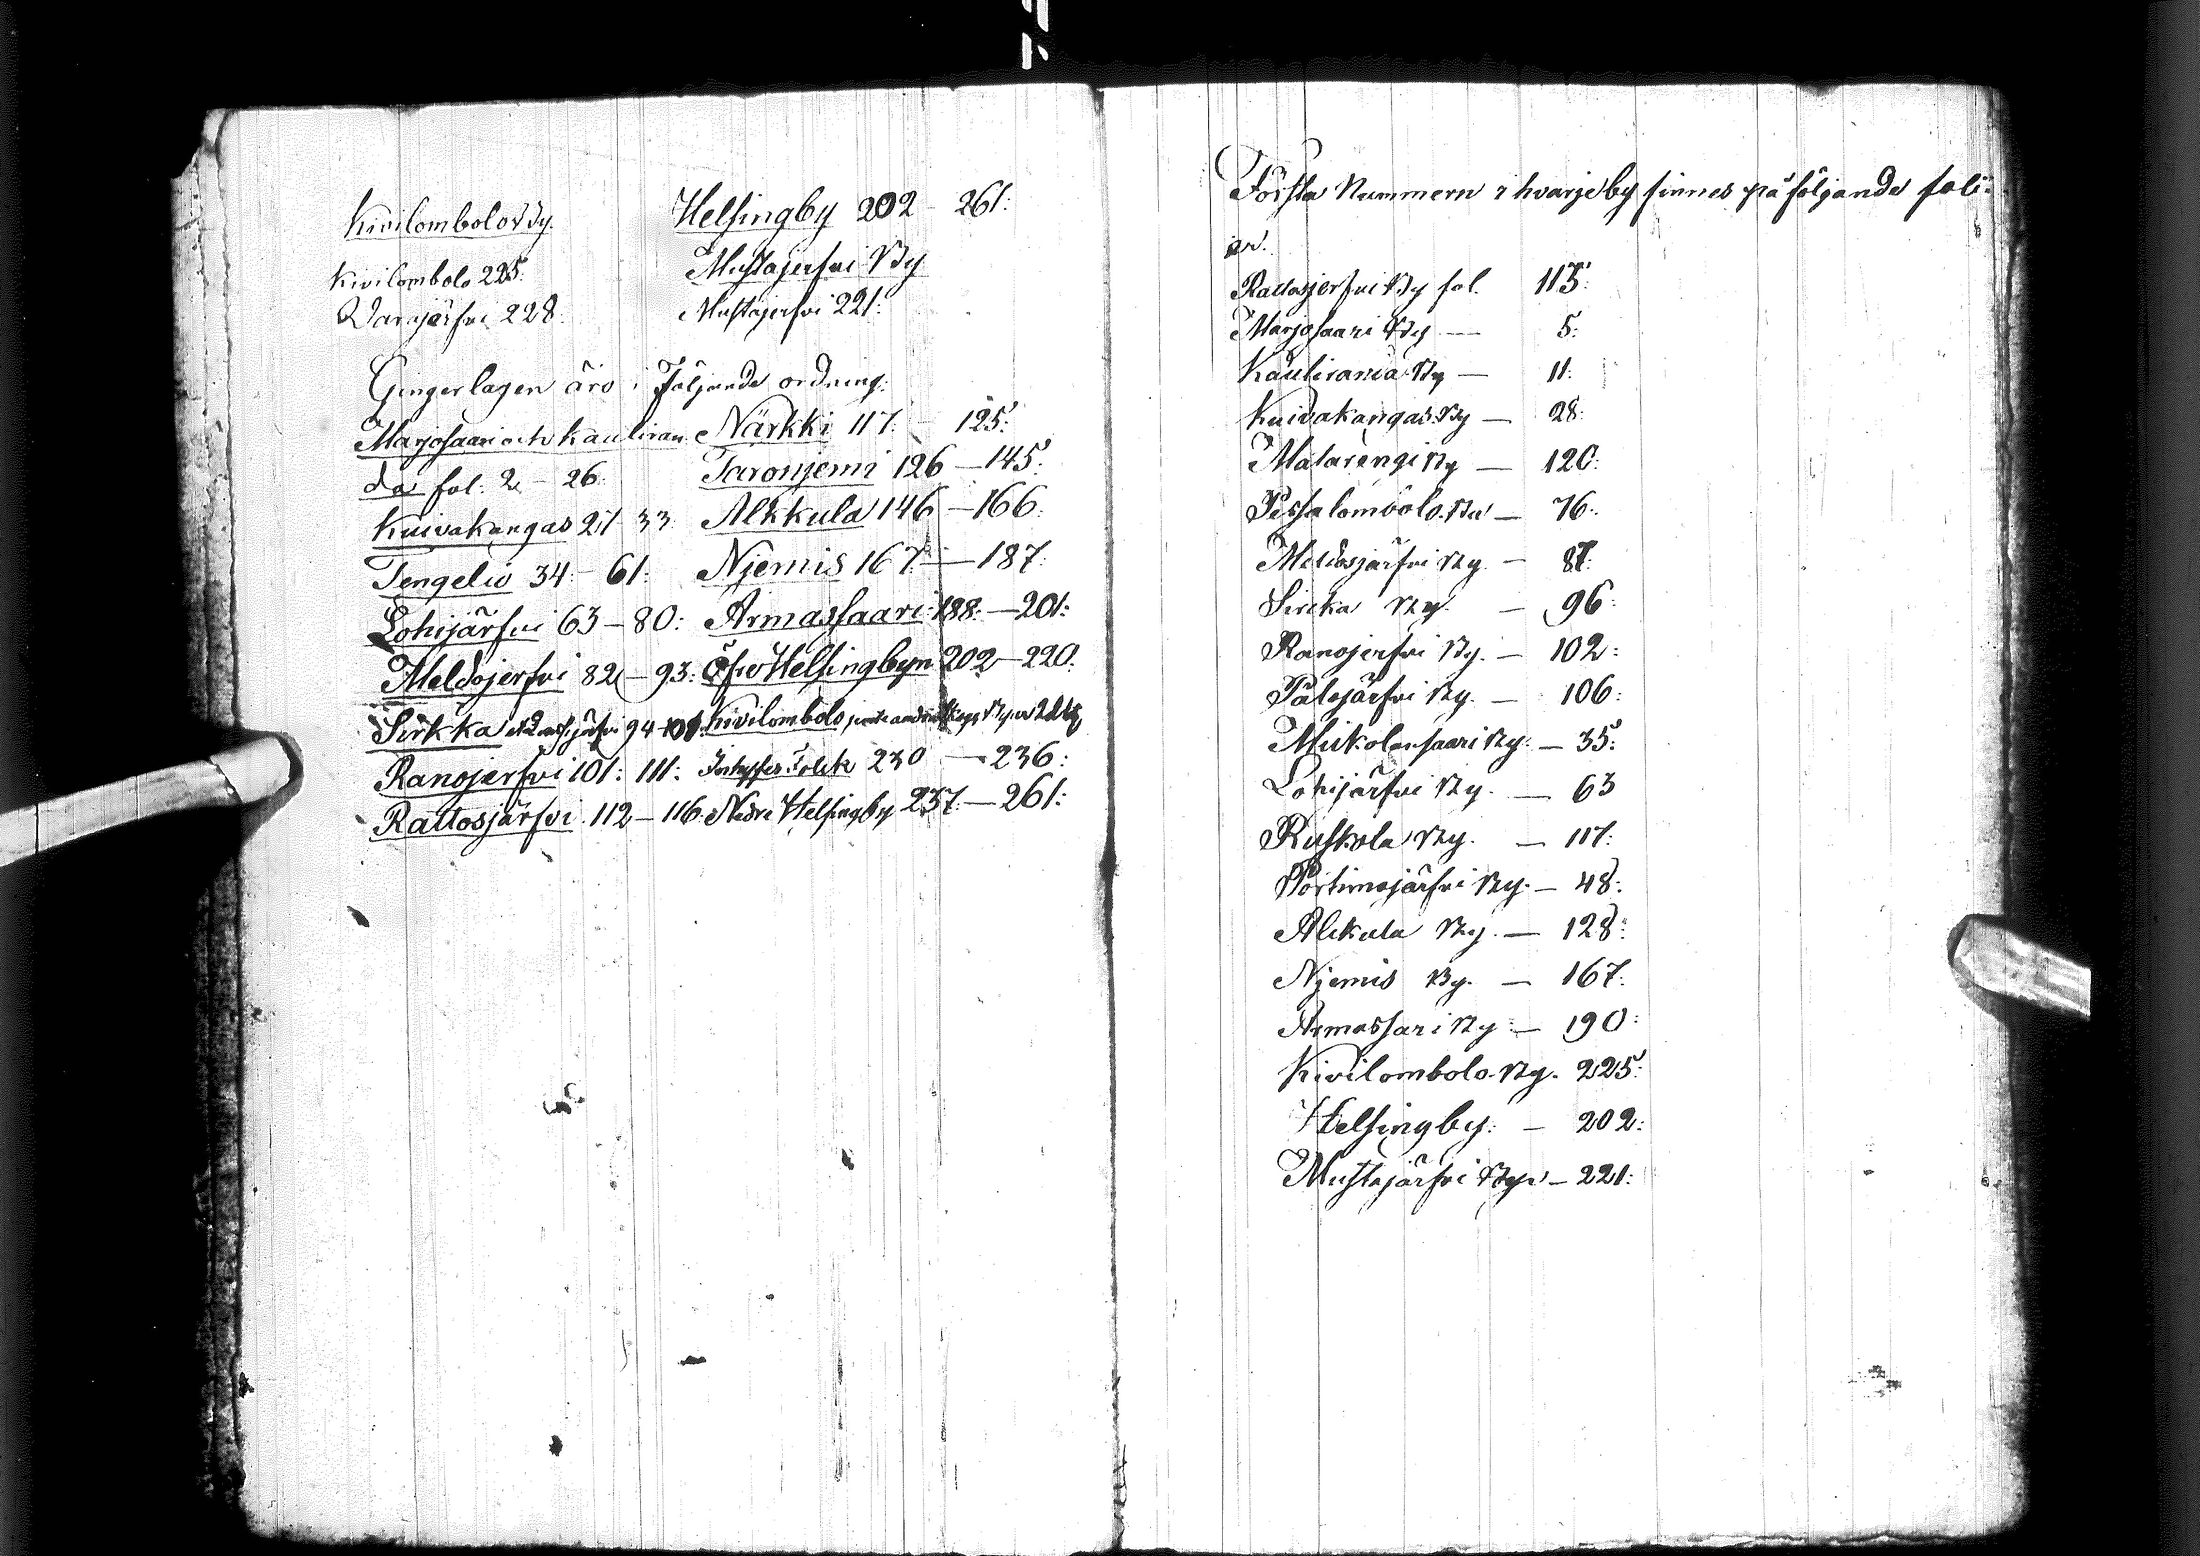 Kivilombolo By.
Kivilombolo 225:
Varujärfvi 228:
Helsingby 202 – 261:
Mustajerfvi By
Mustajerfvi 221:
Gingerlagen äro i följande ordning:
Marjosaari och Kauliran
da fol: 2 – 26:
Kuivakangas 27 – 33:
Tengeliö 34 – 61:
Lohijärfvi 63 – 80:
Meldojerfvi 82 – 93:
Sirkka 94 –
Ranojerfvi 101: 111:
Rattosjärfvi 112 – 116:
Närkki 117: – 125:
Taronjemi 126 – 145:
Alkkula 146 – 166:
Njemis 167: – 187:
Armassaari 188: – 201:
Öfve Helsingbyn 202 – 220:
Kivilombolo
Inhyses Folck 230 – 236:
Nedre Helsingby 237: – 261:
Första Nummern i hvarje by finnes på följande foli-
er.
Rattosjerfvi By fol. 113:
Marjosaari By — 5:
Kauliranda By — 11:
Kuivakangas By — 28:
Matarengi By — 120:
Pessalombolo By — 76:
Meldosjärfvi By. — 87:
Sircka By. — 96:
Ranojerfvi By. — 102:
Pälojärfvi By. — 106:
Miikolansaari By. — 35:
Lohijärfvi By. — 63
Ruskola By. — 117:
Portimojärfvi By. — 48:
Alckula By. — 128:
Njemis By. — 167:
Armassari By — 190:
Kivilombolo By. 225:
Helsingby: — 202:
Mustajärfvi By — 221: